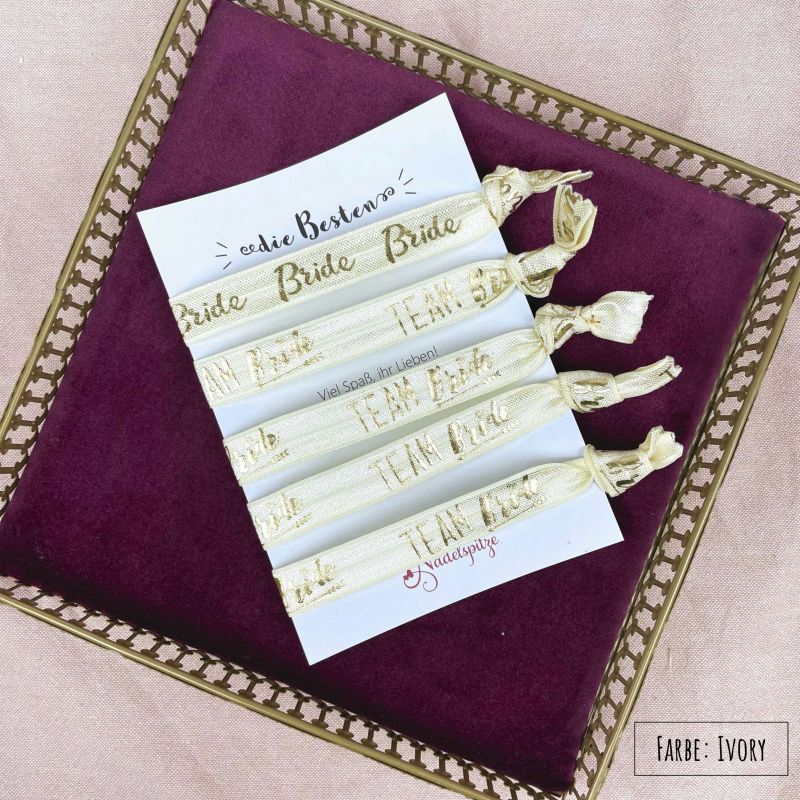 die Besten
Bride Bride Bride
AM Bride TEAM Bride
Viel Spaß, ihr Lieben!
Bride TEAM Bride
Bride TEAM Bride
Bride TEAM Bride
Nadelspitze
FARBE: IVORY